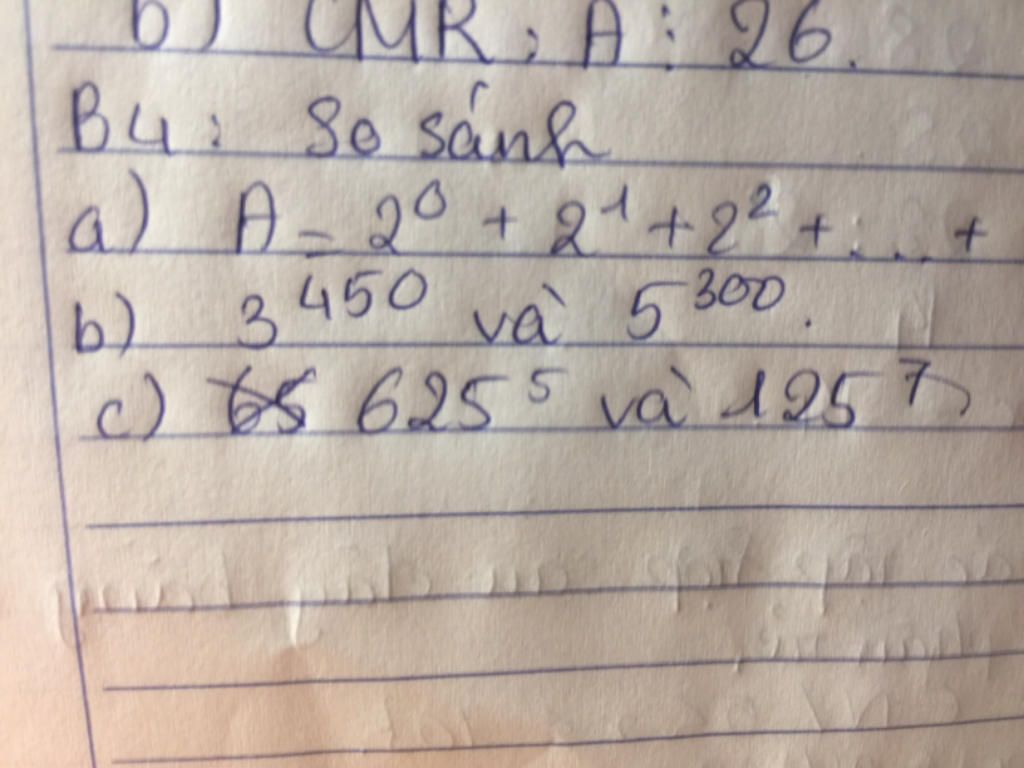 b) CMR : A ⋮ 26.
B4 : So sánh
a) A = 2⁰ + 2¹ + 2² + ... +
b) 3⁴⁵⁰ và 5³⁰⁰.
c) 625⁵ và 125⁷